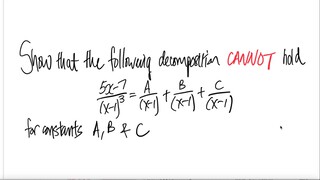 Show that the following decomposition CANNOT hold
5x-7/(x-1)³ = A/(x-1) + B/(x-1) + C/(x-1)
for constants A, B & C